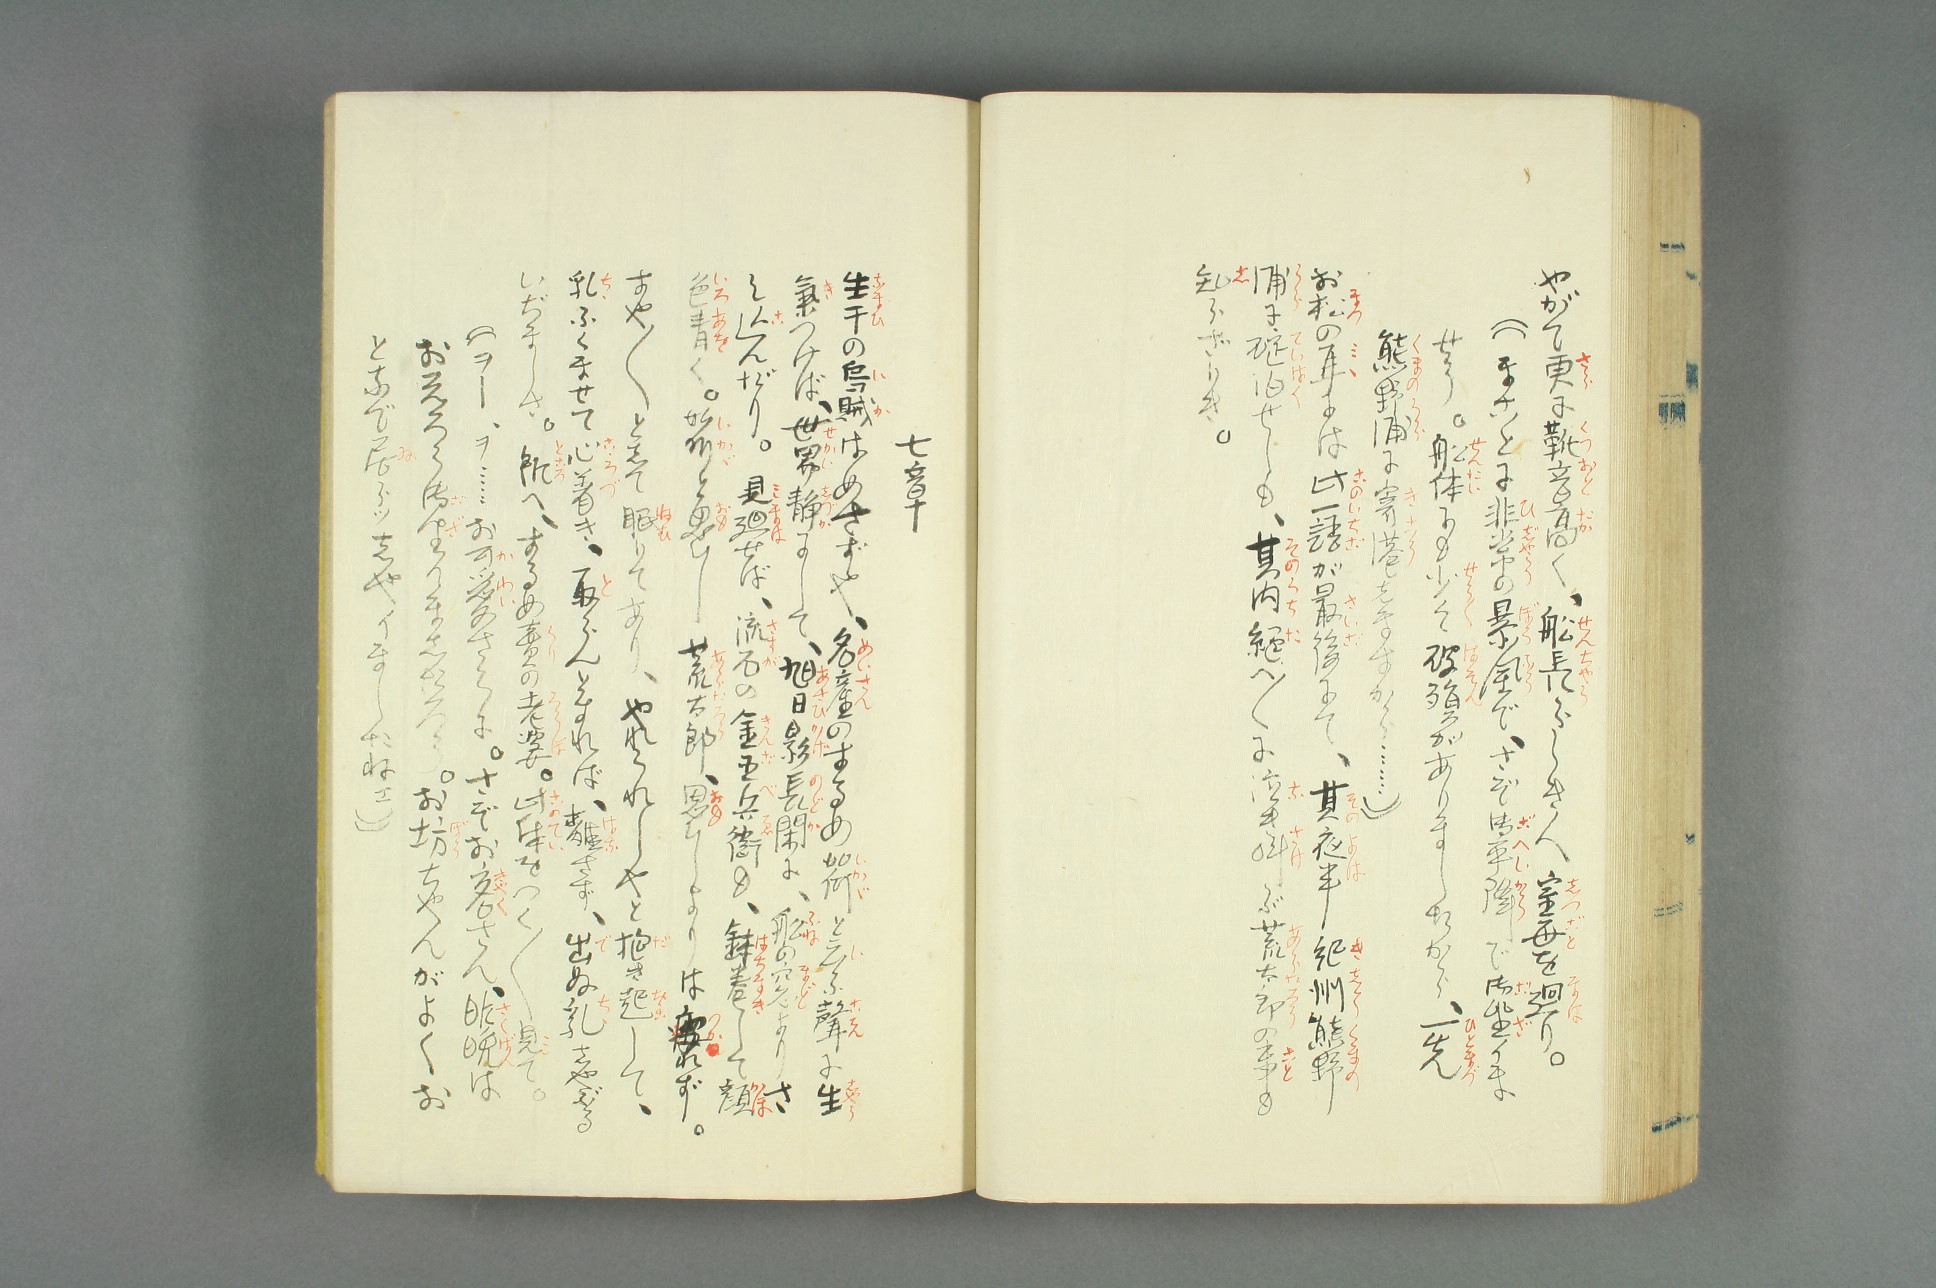 やがて更に靴音高く、船長らしき人 室毎を廻り。
（まことに非常の暴風で、さぞ御平臥で御坐いま
せう。船体にも少々破損がありましたから、一先
熊野浦に寄港しますから……）
お松の耳には此一語が最後にて、其夜半紀州熊野
浦に碇泊せしも、其内絶へ〳〵に泣き叫ぶ荒太郎の事も
知らざりき。
七章
生干の烏賊はめさずや、名産のするめ如何と云ふ聲に生
氣つけば、世界静にして、旭日影長閑に、船の窓よりさ
し込んだり。見廻せば、流石の金五兵衛も、鉢巻して顔
色青く。如何と思ひし荒太郎、思ひしよりは疲れず。
すや〳〵として眠りてあり、やれうれしやと抱き起して、
乳ふくませて心着き、取らんとすれば、離さず、出ぬ乳しやぶる
いぢましさ。所へ、するめ賣の老婆。此体をつく〴〵見て。
（ヲー、ヲ……お可愛相さうに。さぞお客さん、昨晩は
お
お坊ちやんがよくお